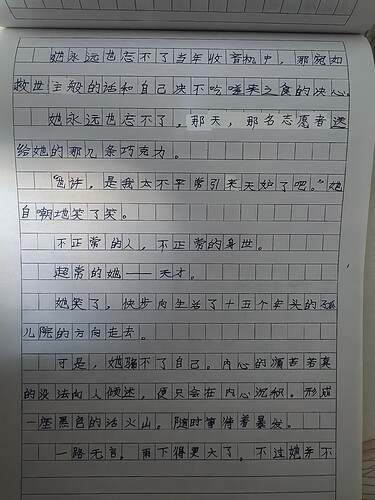 她永远也忘不了当年收音机中，那宛如
救世主般的话和自己决不吃嗟来之食的决心。
她永远也忘不了，那天，那名志愿者送
给她的那几条巧克力。
“也许，是我太不平常引来天妒了吧。”她
自嘲地笑了笑。
不正常的人，不正常的身世。
超常的她——天才。
她笑了，快步向生活了十五个年头的孤
儿院的方向走去。
可是，她骗不了自己。内心的痛苦若真
的没法向人倾述，便只会在内心沉积。形成
一座黑色的活火山。随时审待着暴发。
一路无言。雨下得更大了。不过她并不